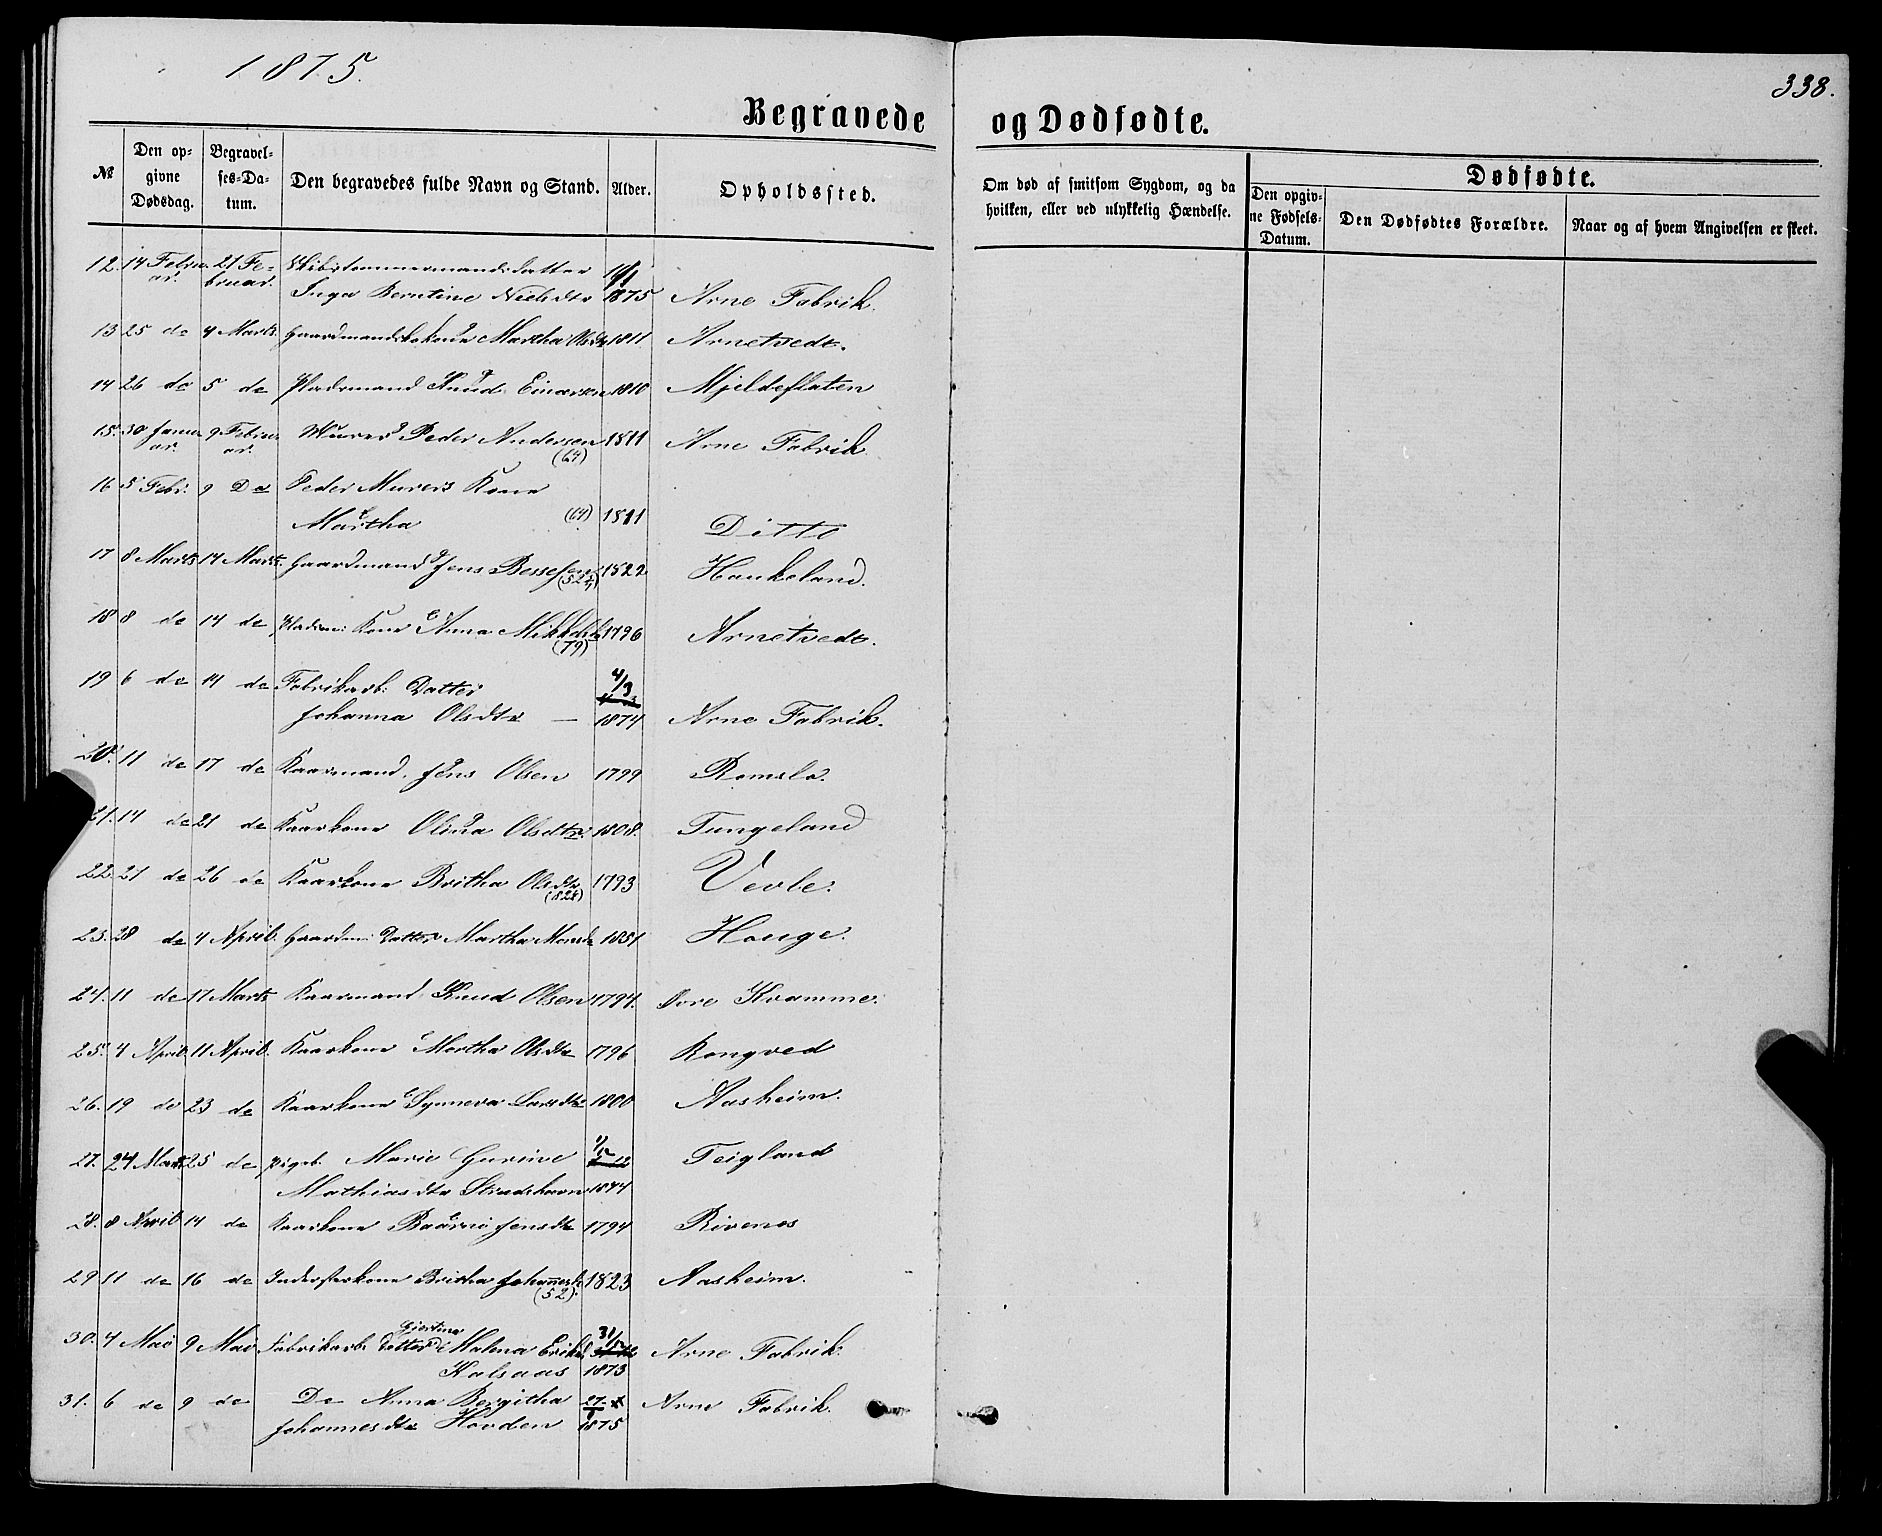 1875.
338.
Begravede og Dødfødte.
№
Den op-
givne
Dødsdag.
Begravel-
ses-Da-
tum.
Den begravedes fulde Navn og Stand.
Alder.
Opholdssted.
Om død af smitsom Sygdom, og da
hvilken, eller ved ulykkelig Hændelse.
Dødfødte.
Den opgiv-
ne Fødsels-
Datum.
Den Dødfødtes Forældre.
Naar og af hvem Angivelsen er skeet.
12. 14 Febru- 21 Fe- Skibstømmermands datter
ar. bruar. Inga Berntine Nielsdtr 1875 Arne Fabrik.
13 25 de 4 Marts. Martha Olsdtr 1811 Arnetvedt.
14 26 de 5 de Pladsmand Knud Einarsen 1810 Mjeldeflaten
15. 30 Janu- 9 Febru- Murer Peder Andersen 1811 Arne Fabrik
ar. ar. (64)
16 5 Febr. 9 Do Peder Murers Kone
Martha (64) 1811 Ditto
17 8 Marts 14 Marts. Gaardmand Jens Bessesen 1822 Haukeland.
18 8 de 14 de Pladsm: Kone Anna Mikkelsdtr 1796 Arnetvedt.
(79)
19 6 de 14 de Fabrikarb: Datter 4/3
Johanna Olsdtr — 1874 Arne Fabrik.
20. 11 de 17 de Kaarmand Jens Olsen 1799 Romslo.
21. 14 de 21 de Kaarkone Olina Olsdtr. 1808. Tungeland
22. 21 de 26 de Kaarkone Britha Olsdtr 1793 Vevle.
23. 28 de 4 April. Gaardm: Datter Martha Monsdtr 1851 Houge.
24. 11 de 17 Marts Kaarmand Knud Olsen 1794. Øvre Kvamme.
25. 4 April 11 April. Kaarkone Martha Olsdtr 1796 Rongved
26. 19 de 23 de Kaarkone Synneva Larsdtr 1800 Aasheim.
27. 24 Marts 25 de Pigeb. Marie Gurine Teigland
Mathiasdtr 1844
28. 8 April 14 de Kaarkone Jensdtr 1794 Rivenes
29 11 de 16 de Inderstkone Britha Johannesdtr 1823 Aasheim.
(52).
Gjertine
30. 4 Mai 9 Mai Fabrikarb: Datter Malma Eriksd 31/12 Arne Fabrik.
Kalsaas 1873
31. 6 de 9 de De Anna Bergitha Arne Fabrik.
Johannesdtr Hovden 1875